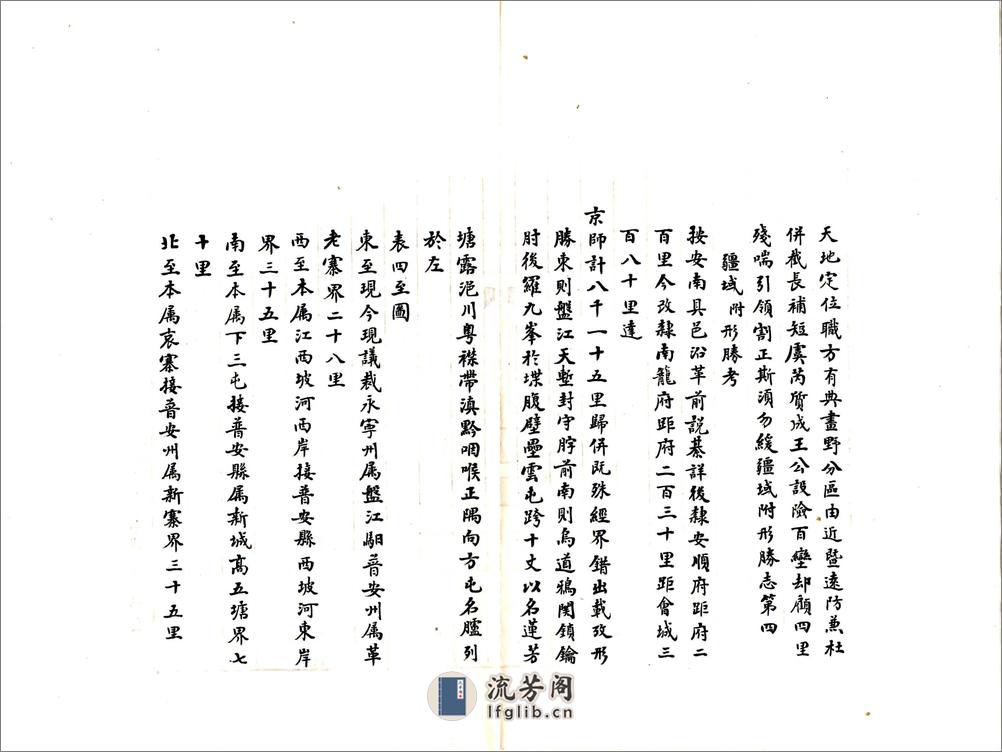 天地定位職方有典畫野分區由近暨遠防兼杜
併截長補短虞芮質成王公設險百蠻却顧四里
殘喘引領割正斯須勿緩疆域附形勝志第四
疆域附形勝考
按安南具邑沿革前説綦詳後隸安順府距府二
百里今改隸南籠府距府二百三十里距會城三
百八十里達
京師計八千一十五里歸併既殊經界錯出載攷形
勝東則盤江天塹封守脖前南則烏道鴉関鎖鑰
肘後羅九峯於堞腹壁壘雲屯跨十丈以名蓮芳
塘露浥川粤襟帶滇黔咽喉正隅向方屯名臚列
於左
表四至圖
東至現今現議裁永寧州属盤江馹普安州属革
老寨界二十八里
西至本属江西坡河西岸接普安縣西坡河東岸
界三十五里
南至本属下三屯接普安縣属新城髙五塘界七
十里
北至本属哀寨接普安州属新寨界三十五里
流芳阁
lfglib.cn